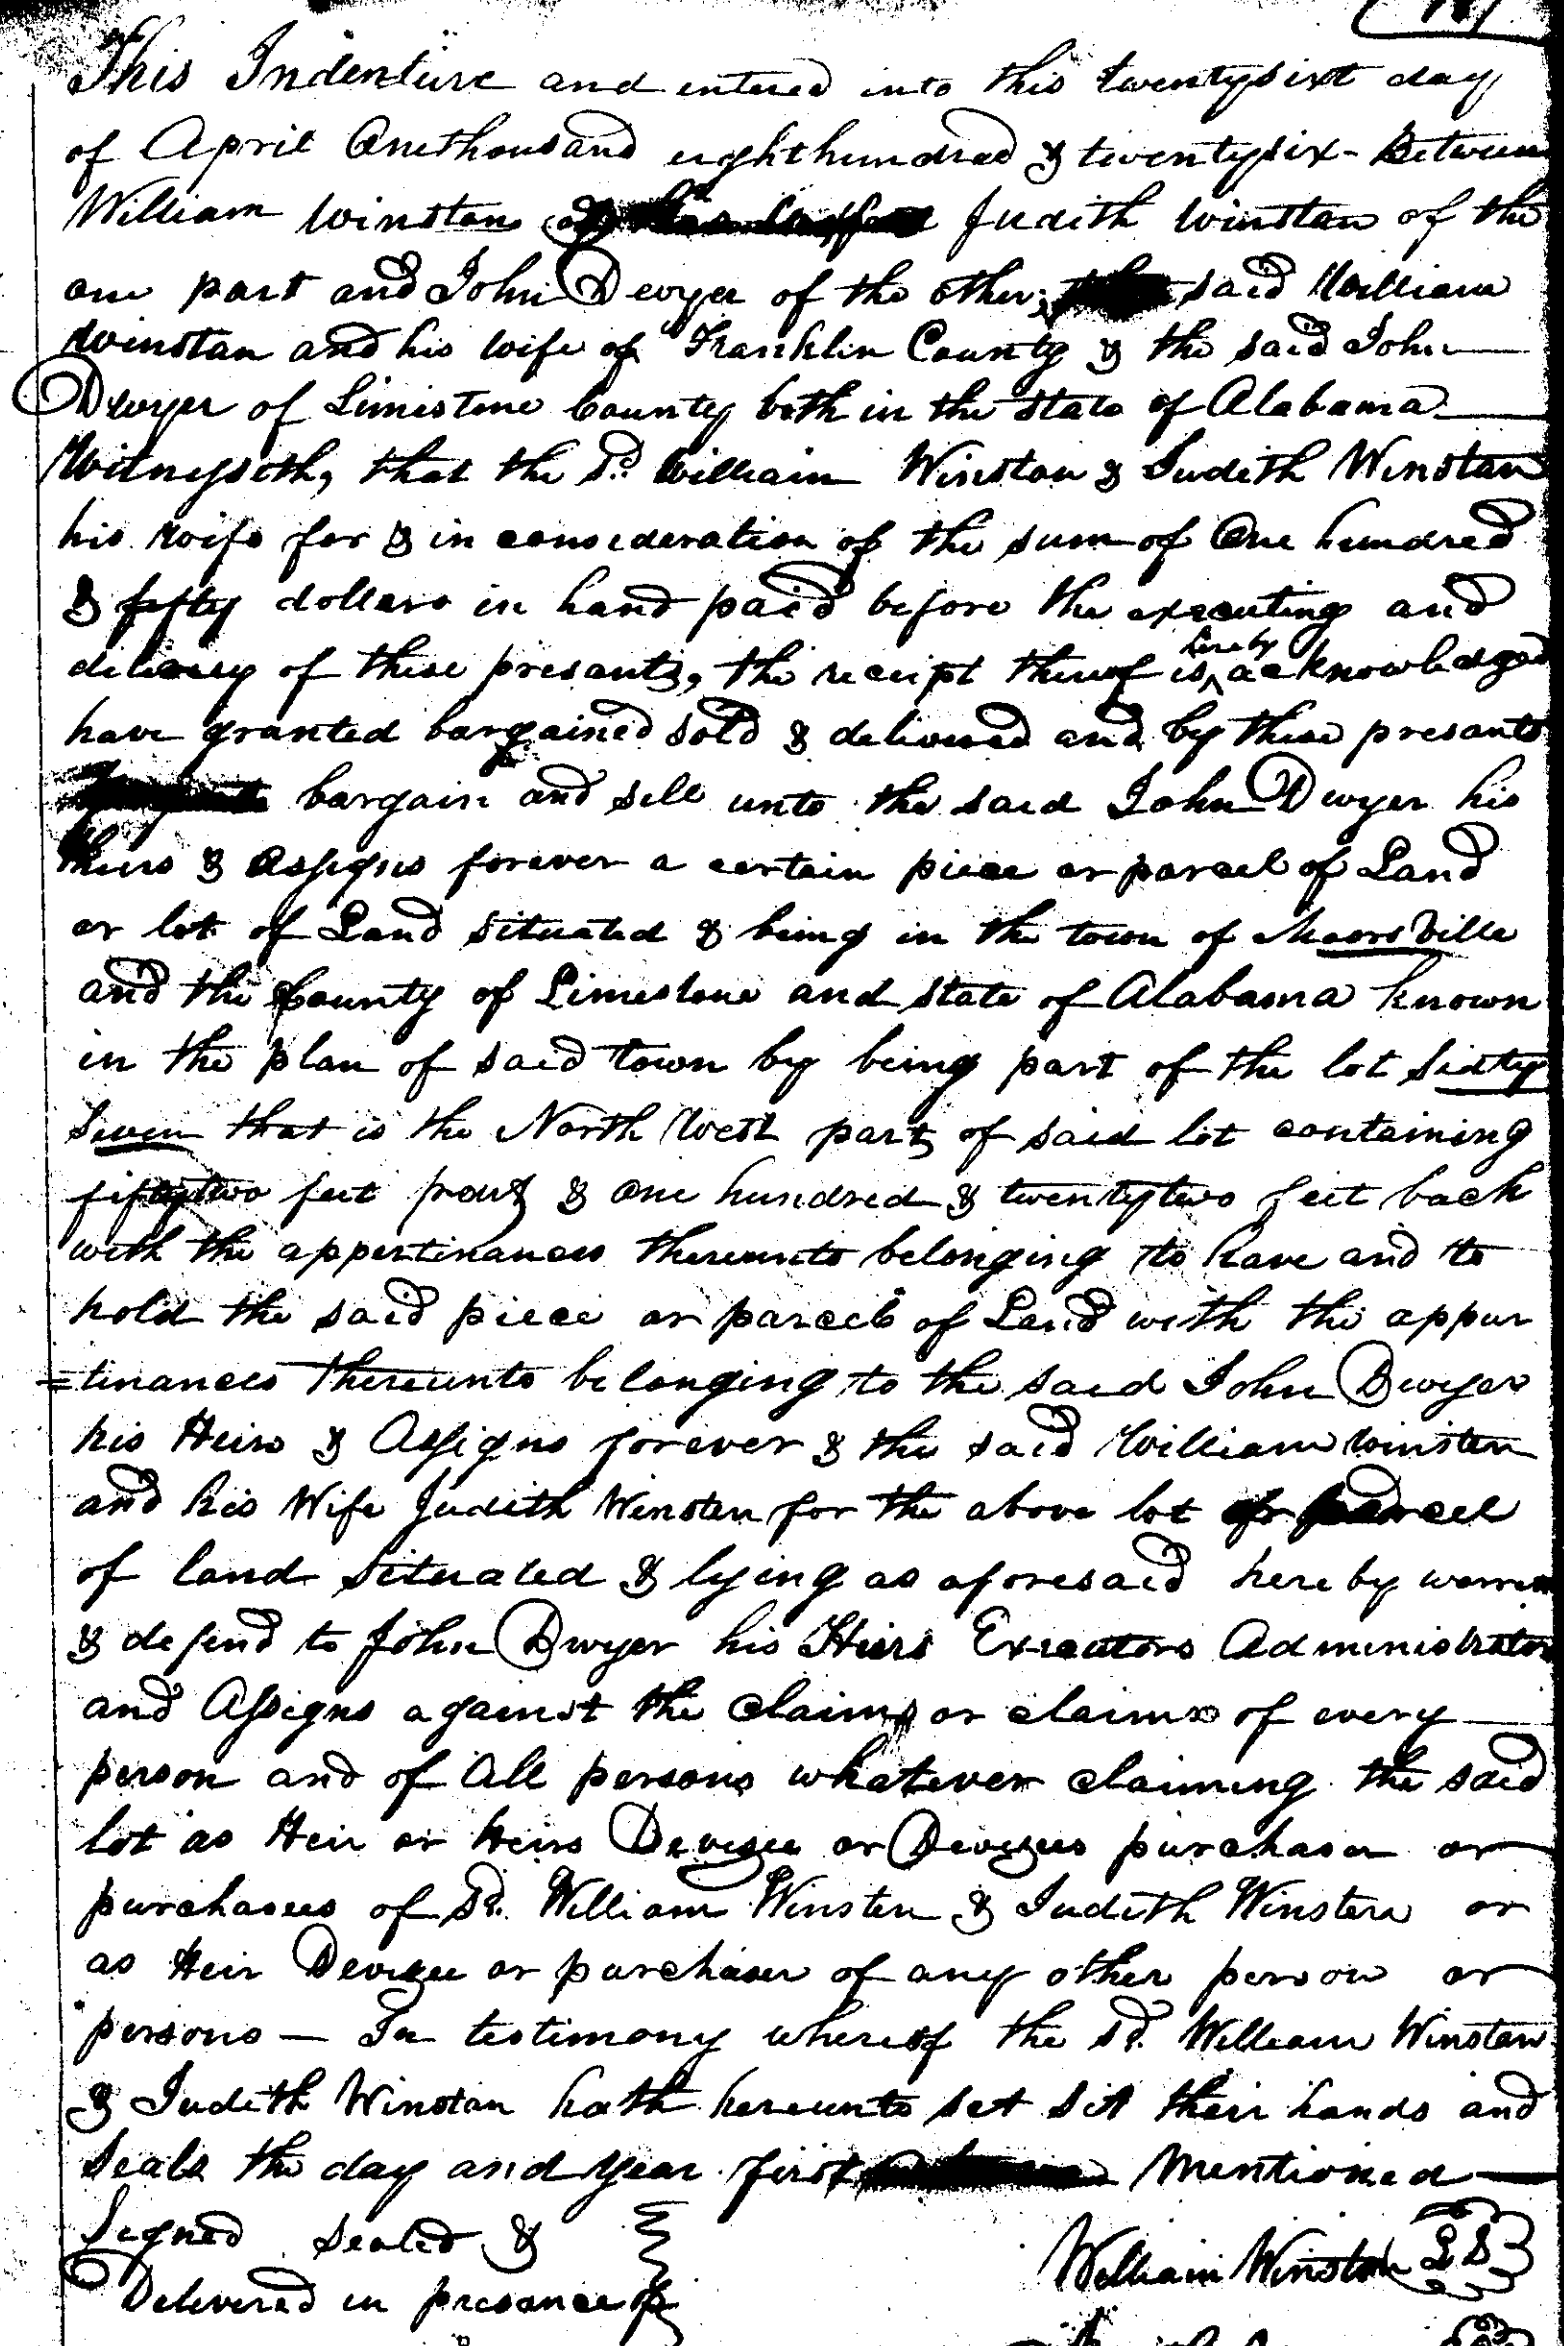 This Indenture and entered into this twentysixt day
of April Onethousand eighthundred & twentysix - Between
William Winston Judith Winston of the
one part and John Dwyer of the other, said William
Winston and his wife of Franklin County & the said John
Dwyer of Limistone County both in the state of Alabama
Witnesseth, that the Sd. William Winston & Judith Winston
his wife for & in consideration of the sum of One hundred
& fifty dollars in hand paid before the executing and
delivery of these presants, the receipt thereof is hereby acknowledged
have granted bargained sold & delivered and by these presants
bargain and sell unto the said John Dwyer his
heirs & Assigns forever a certain piece or parcel of Land
or lot of Land situated & being in the town of MoorsVille
and the County of Limestone and state of Alabama known
in the plan of said town by being part of the lot Sixty
Seven that is the North West part of said lot containing
fiftytwo feet front & one hundred & twentytwo feet back
with the appertinances thereunto belonging to have and to
hold the said piece or parcel of Land with the appur
=tinances thereunto belonging to the said John Dwyer
his Heirs & Assigns forever & the said William Winston
and his Wife Judith Winston for the above lot or parcel
of land situated & lying as aforesaid hereby warrent
& defend to John Dwyer his Heirs Executors Administrators
and Assigns against the claims or claims of every
person and of All persons whatever claiming the said
lot as Heir or Heirs Devisee or Devisees purchaser or
purchasers of Sd. William Winston & Judith Winston or
as Heir Devisee or purchaser of any other person or
persons — In testimony whereof the sd. William Winston
& Judith Winston hath hereunto set sit their hands and
Seals the day and year first Mentioned
Signed Sealed &
Delivered in presance of
William Winston LS